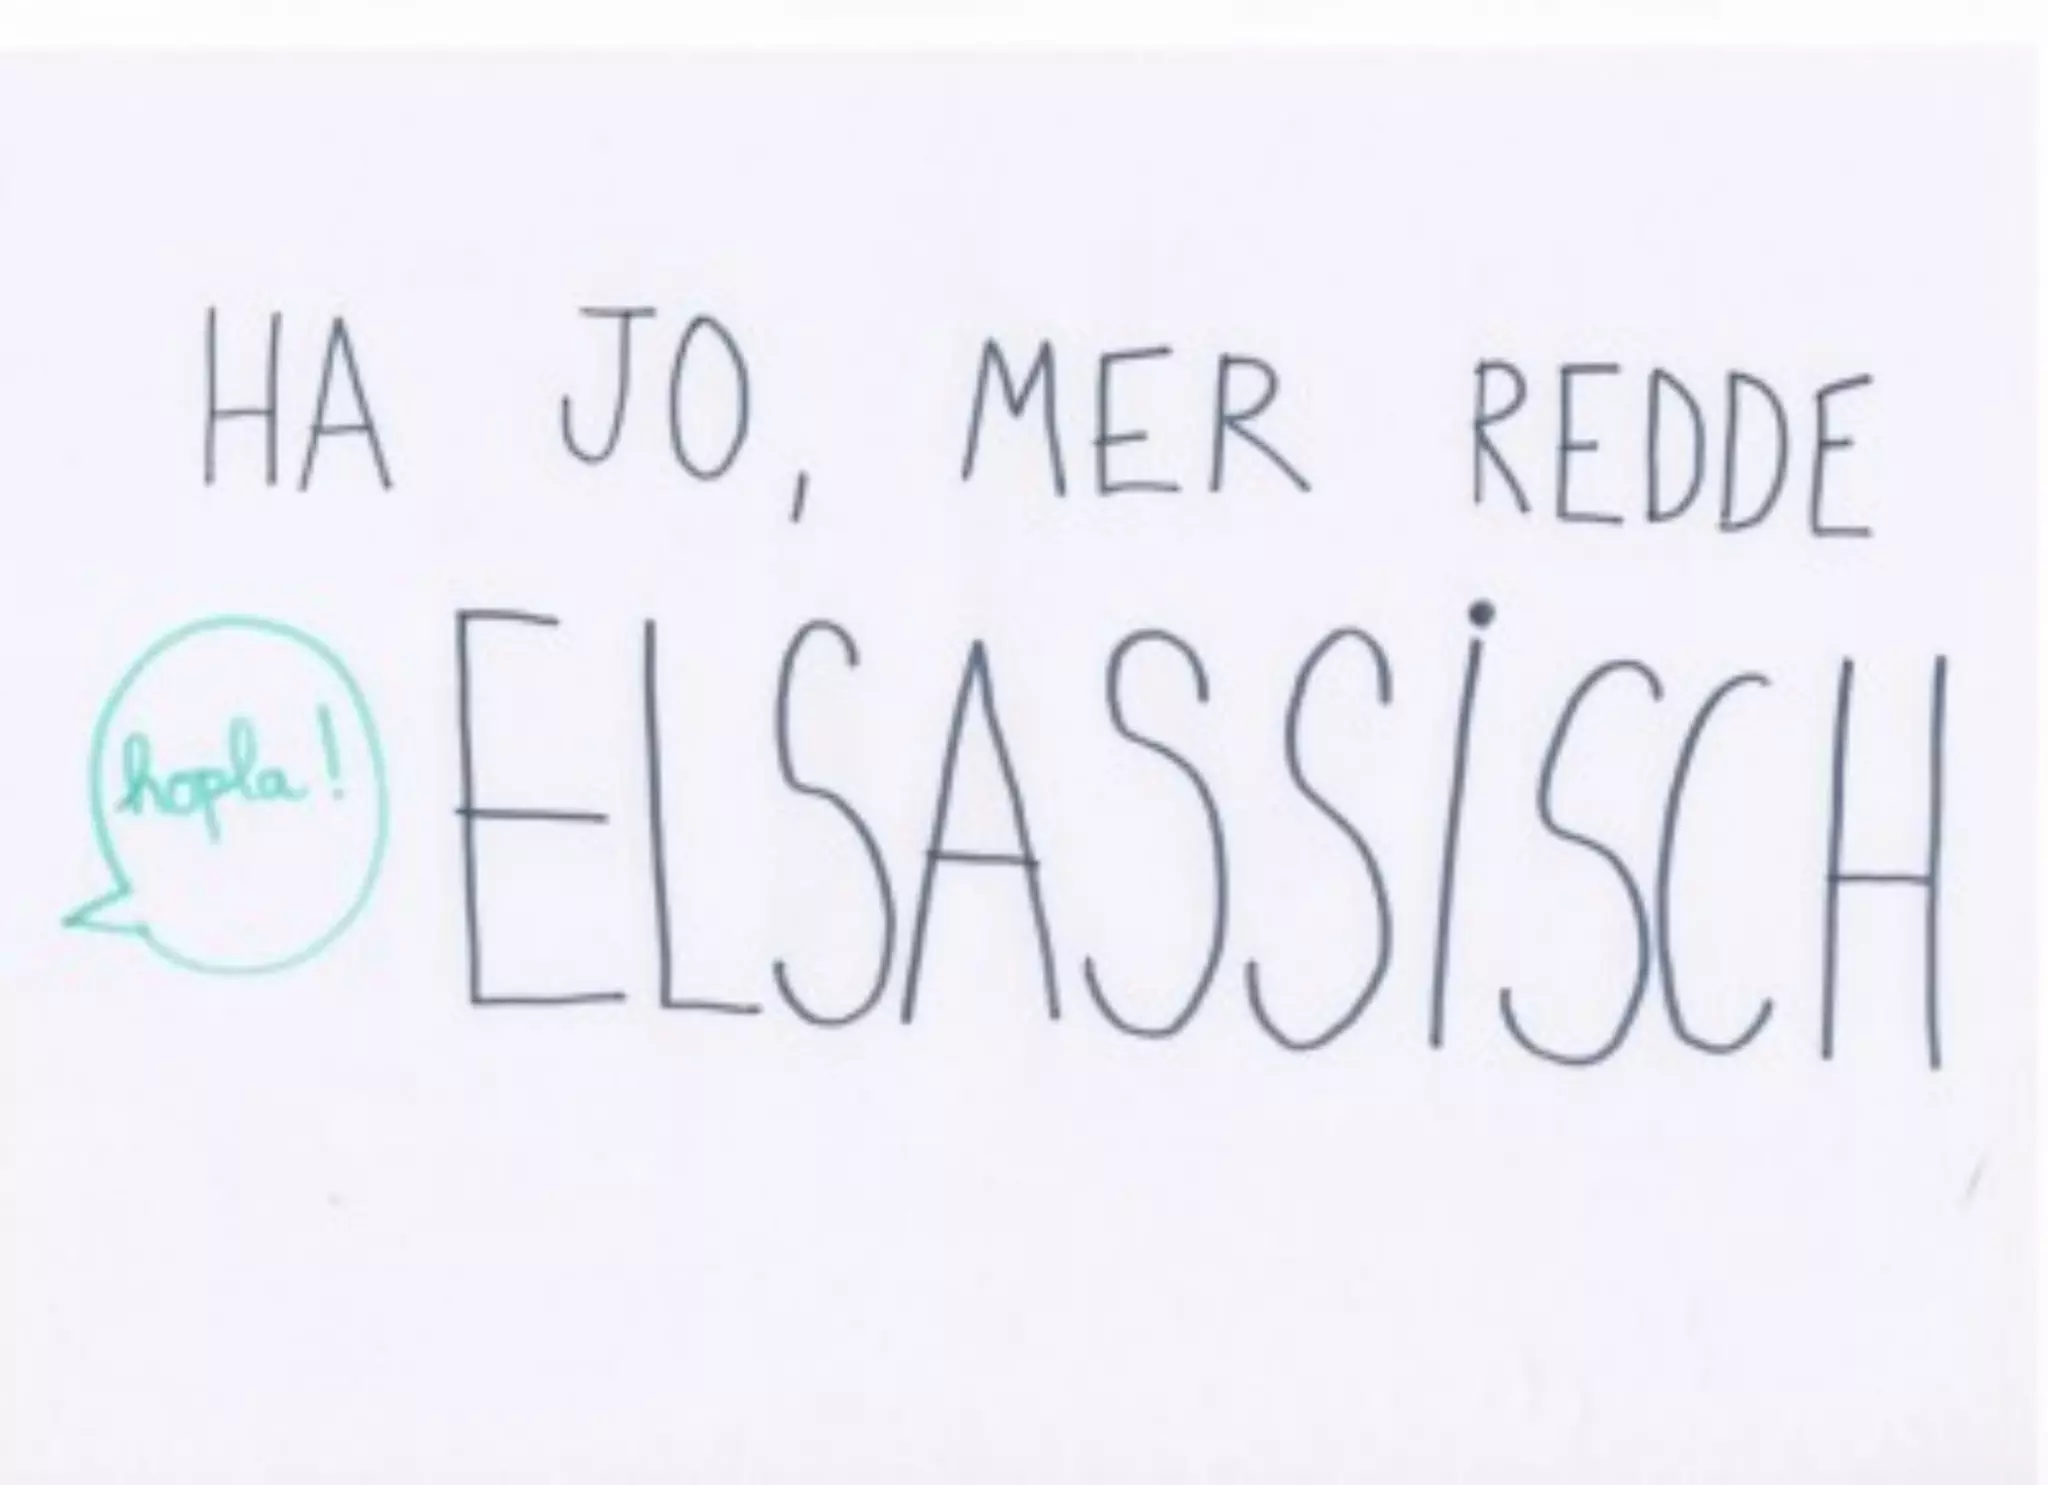 HA JO, MER REDDE
hopla!
ELSASSiSCH